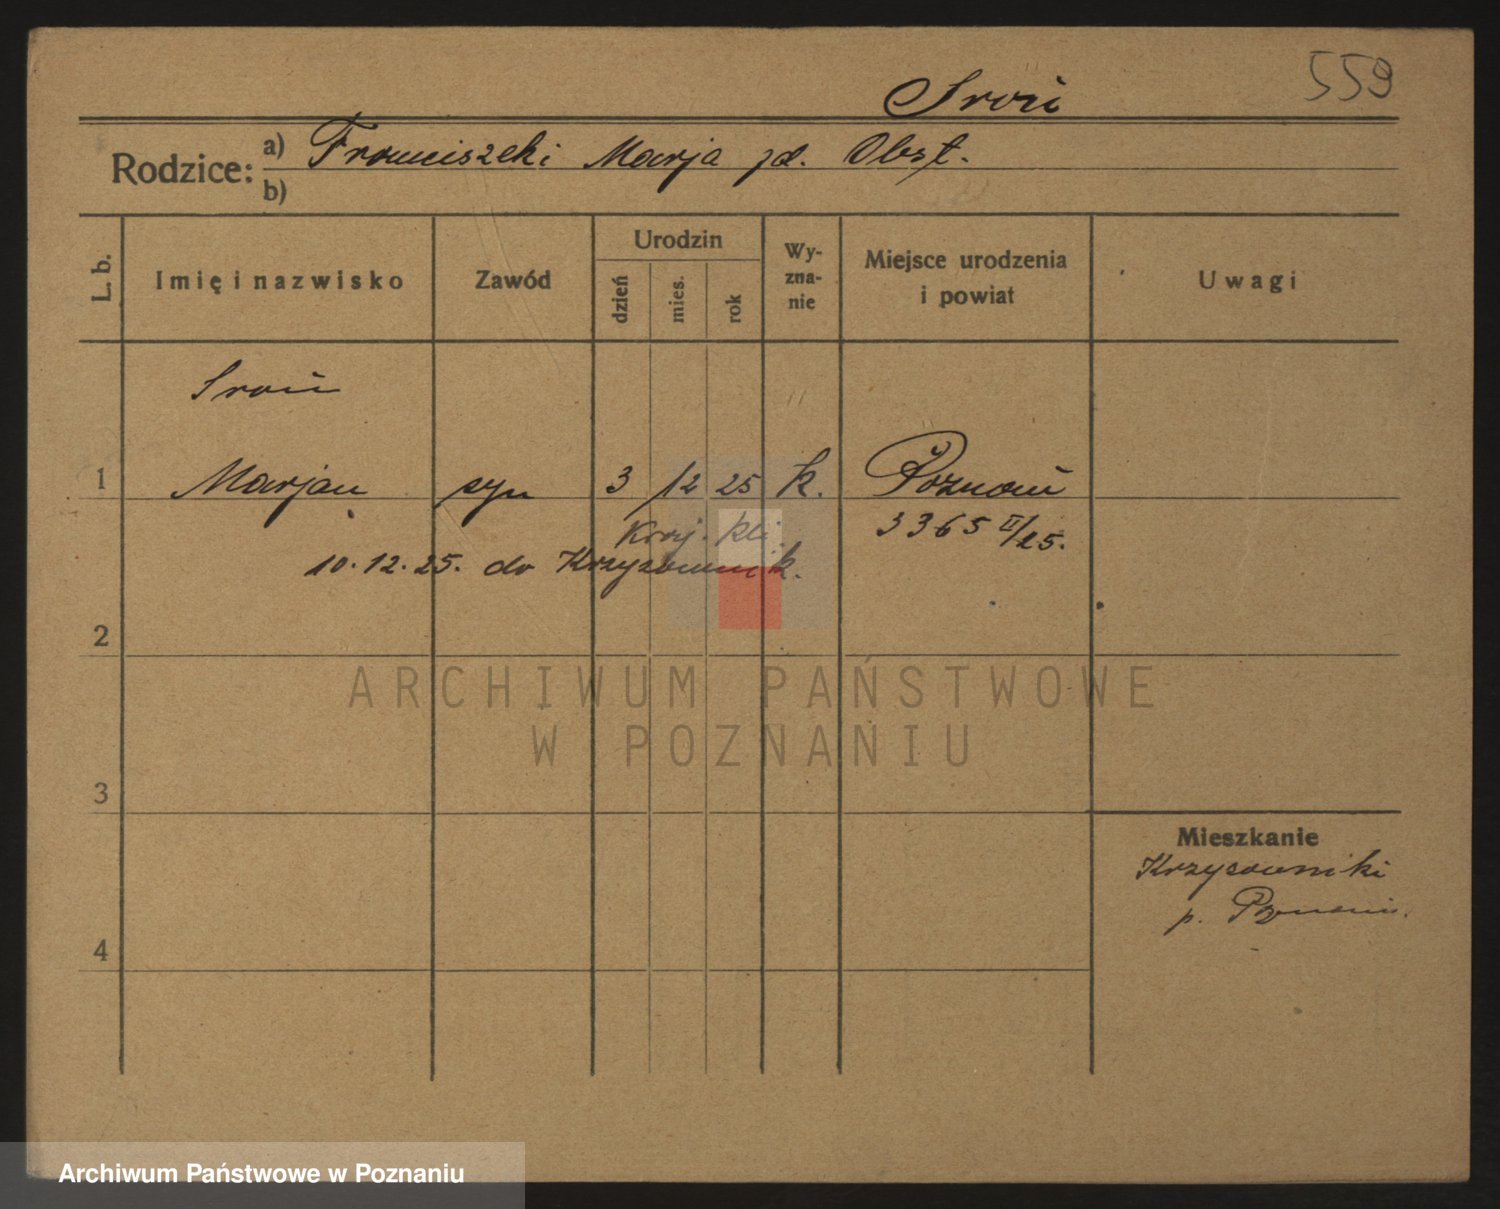 559
Sroń
Rodzice: a) Franciszek i Marja zd. Obst.
b)
L. b. Imię i nazwisko Zawód Urodzin dzień mies. rok Wy-zna-nie Miejsce urodzenia i powiat Uwagi
Sroń
1 Marjan syn 3 12 25 k. Poznań
Kraj. kli. 3365 II/25.
10.12.25. do Krzyżownik.
2
ARCHIWUM PAŃSTWOWE
W POZNANIU
3
Mieszkanie
Krzyżowniki
p. Poznań.
4
Archiwum Państwowe w Poznaniu